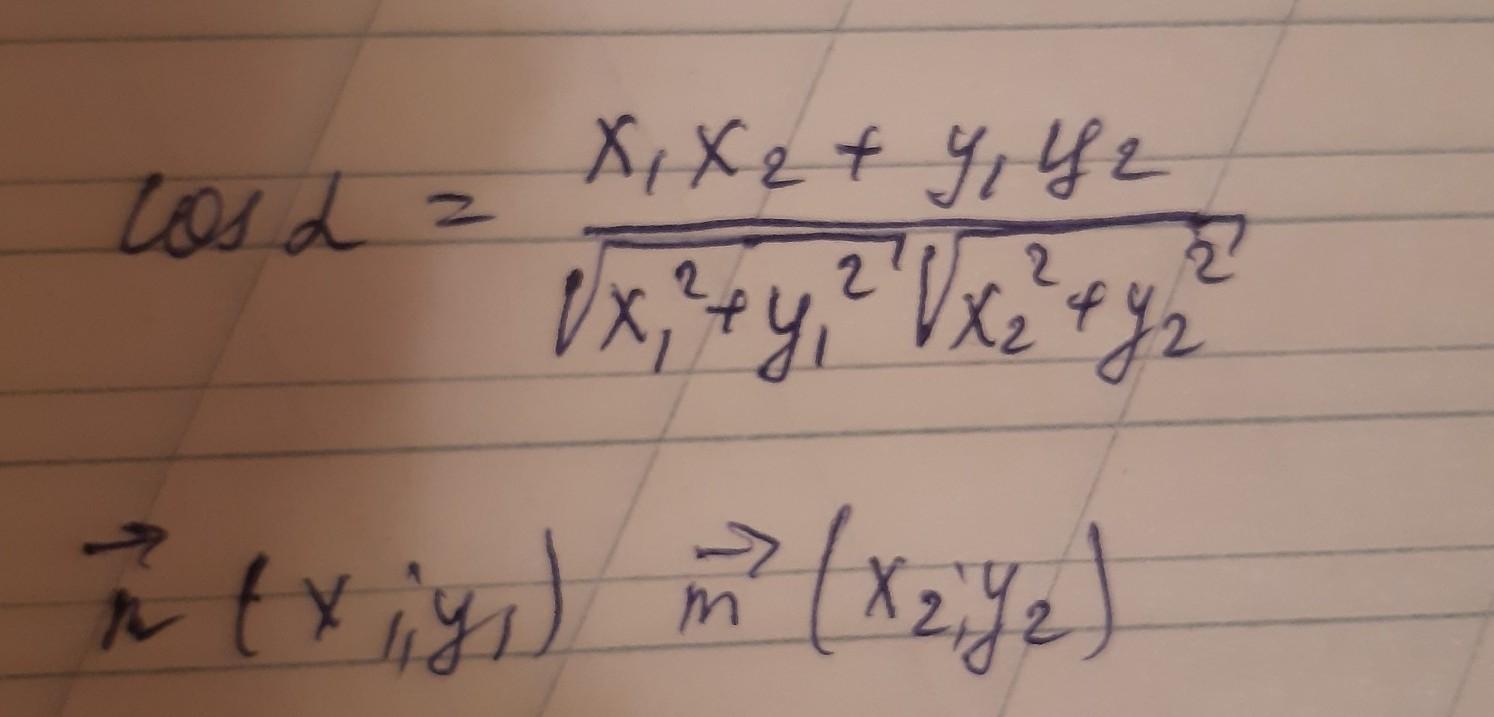 cos α = (x₁x₂ + y₁y₂) / (√(x₁² + y₁²) √(x₂² + y₂²))
n⃗ (x₁; y₁) m⃗ (x₂; y₂)